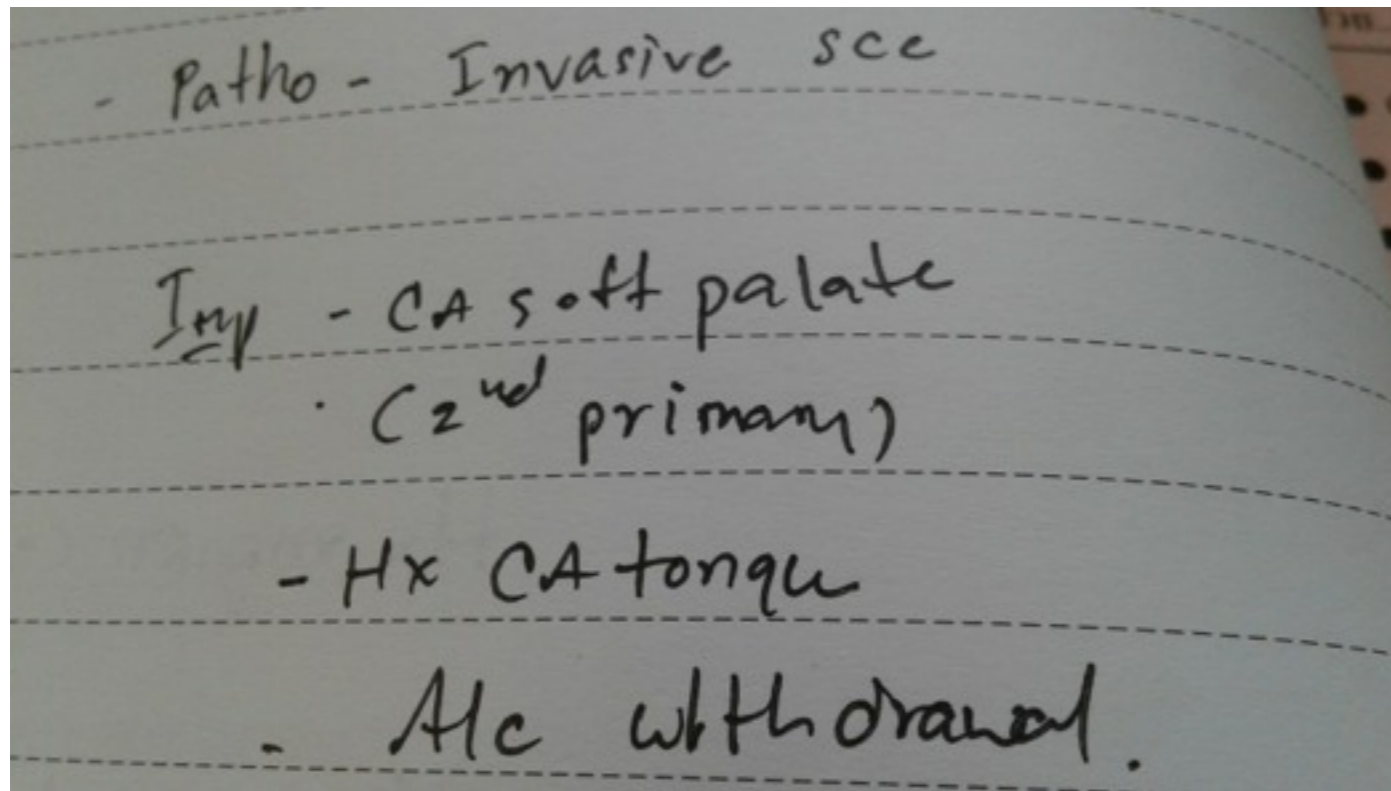 - Patho - Invasive scc
Imp - CA soft palate
(2nd primary)
- Hx CA tongue
- Alc withdrawal.